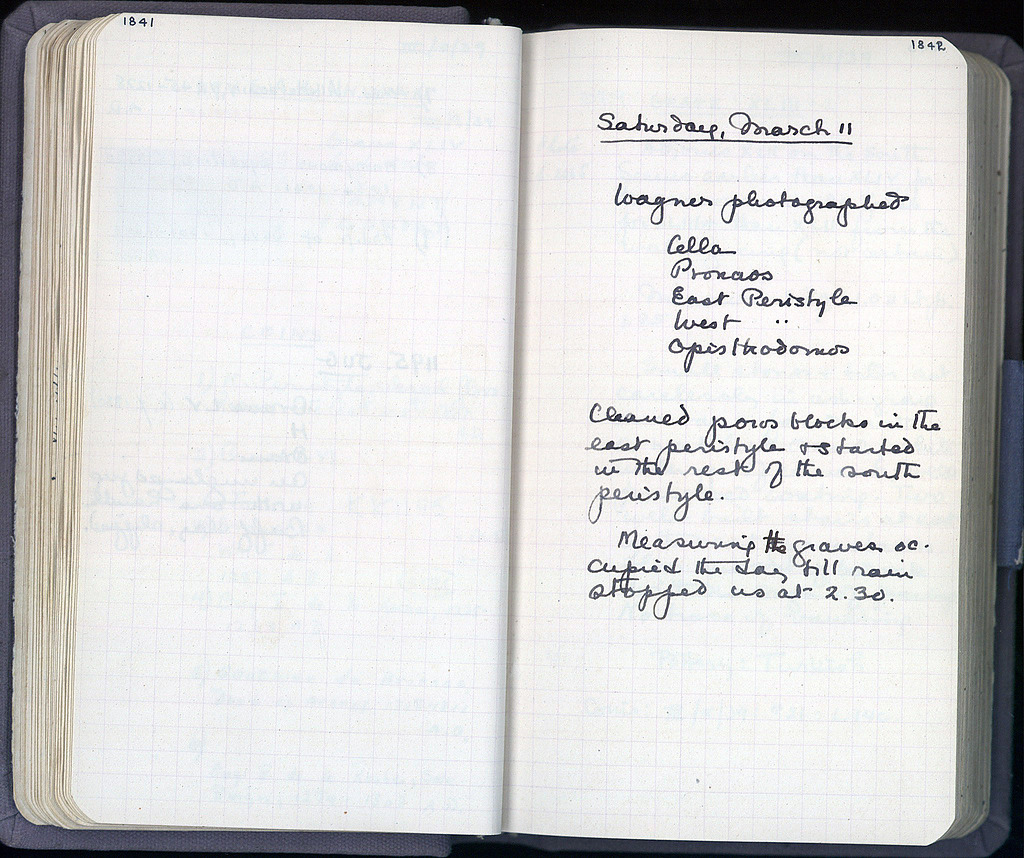 1841
1842
Saturday, March 11
Wagner photographed
Cella
Pronaos
East Peristyle
West "
Opisthodomos
Cleaned poros blocks in the
east peristyle + started
in the rest of the south
peristyle.
Measuring the graves oc-
cupied the day till rain
stopped us at 2.30.